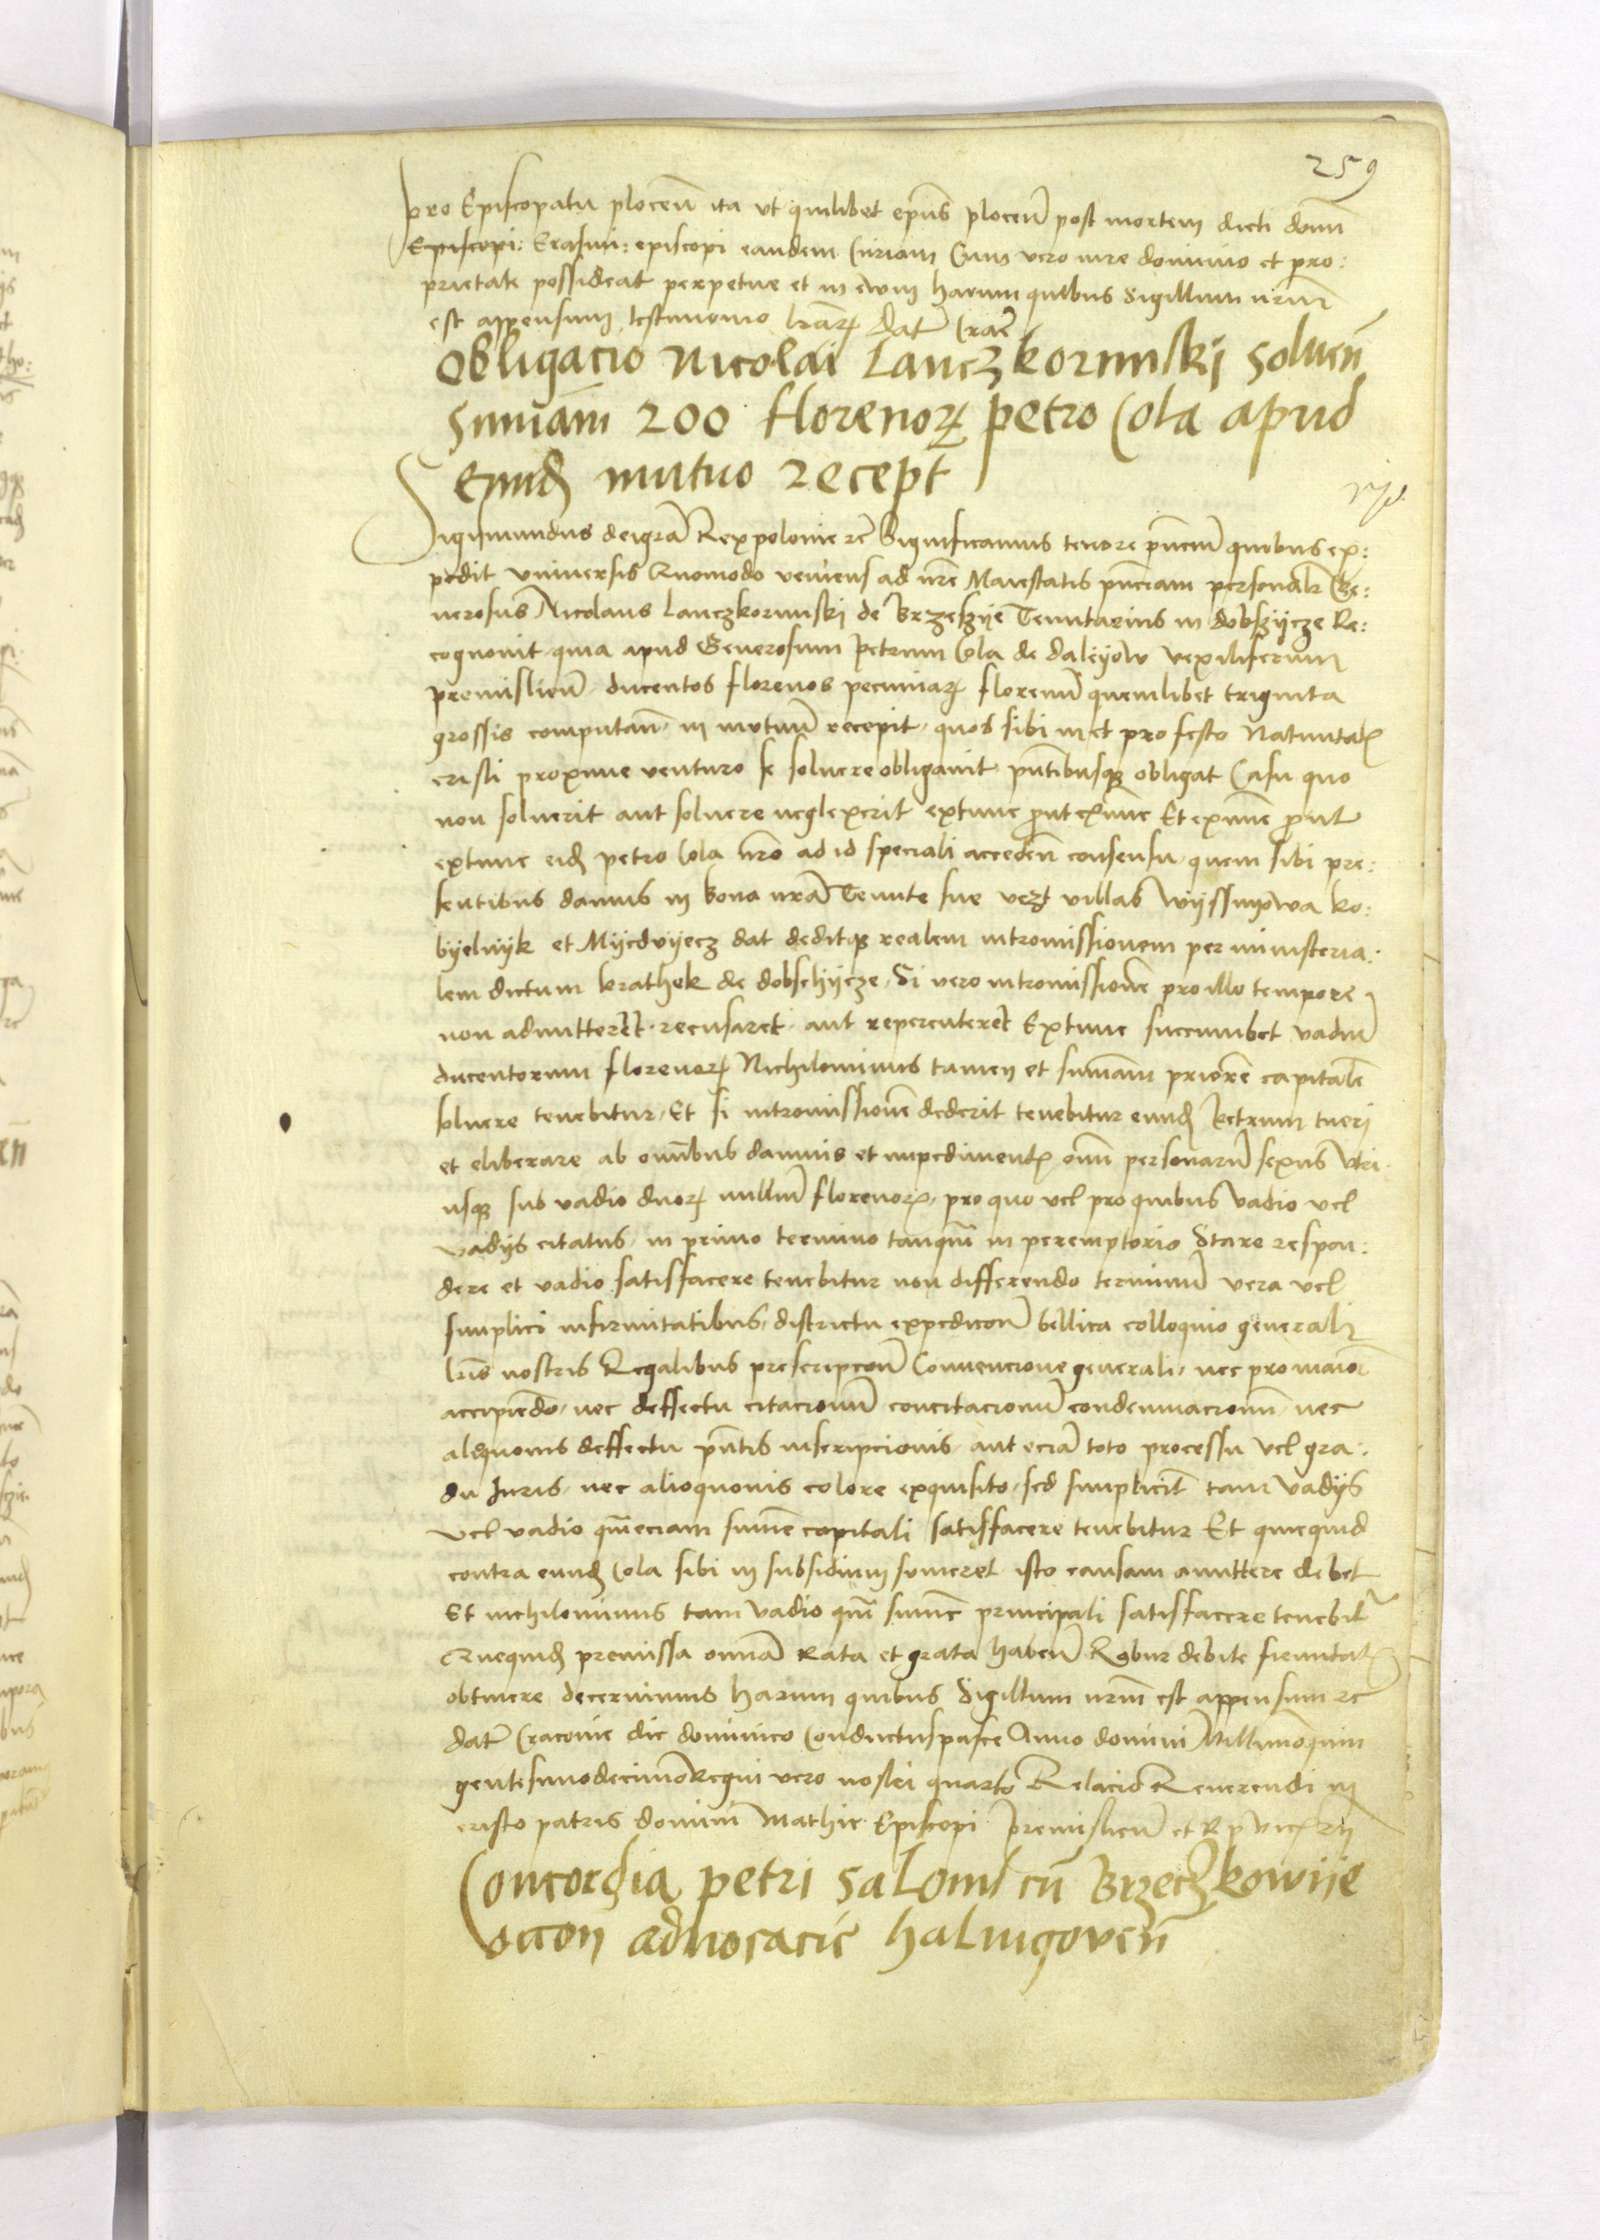 259
pro Episcopatu plocen̄ ita vt quilibet ep̄us plocen̄ post mortem dicti domī
Episcopi: Erasmi: episcopi eandem Curiam Cum vero iure dominio et pro:
prietate possideat perpetue et in ewm harum quibus sigillum nrūm
est appensum testimonio lrārꝝ Datū Craē
Obligacio Nicolai Lanczkorunskj soluen̄
Sum̄am 200 florenorꝝ petro Cola apud
Eund̄ mutuo recept
Sigismundus dei gra͞ Rex polonie rc̄ Significamus tenore pn̄cium quibus ex:
pedit vniuersis Quomodo veniens ad nrē Maiestatis pn̄ciam personalr̄ Ge:
nerosus Nicolaus Lanczkorunski de Brzeszye Tenutarius in dobszycze Re:
cognouit quia apud Generosum Petrum Cola de daleyow vexiliferum
premislien̄ ducentos florenos pecuniarꝝ florenū quemlibet triginta
grossis computan̄ in mutuū recepit quos sibi met pro festo Natiuitatꝭ
cristi proxime venturo se soluere obligauit pn̄tibusqꝫ obligat Casu quo
non soluerit aut soluere neglexerit extunc prout exnunc Et exnunc prout
extunc eid̄ petro Cola nrō ad id speciali acceden̄ consensu quem sibi pre:
sentibus damus in bona nrā Tenute sue vezt villas wyssnyowa ko:
byelnyk et Myedvyecz dat deditqꝫ realem intromissionem per ministeria:
lem dictum krathek de dobschycze Si vero intromissionē pro illo tempore
non admitteret recusaret aut repercuteret Extunc succumbet vadiū
ducentorum florenorꝝ Nichilominus tamen et sum̄am priorē capitalē
soluere tenebitur Et si intromissionē dederit tenebitur eund̄ Petrum tueri
et eliberare ab omnibus damnis et impedimentꝭ omī personarū sexus vtri:
usqꝫ sub vadio duorꝝ milliū florenorꝝ pro quo vel pro quibus vadio vel
vadijs citatus in primo termino tanqūa in peremptorio Stare respon:
dere et vadio satisfacere tenebitur non differendo terminū vera vel
simplici infirmitatibus districtu expedicion̄ bellica colloquio generali
lrīs nostris Regalibus prescripcion̄ Conuencione generali nec pro maiori
accipiendo nec deffectu citacionū concitacionū condemnacionū nec
aliquouis deffectu pn̄tis inscripcionis aut eciā toto processu vel gra:
du Iuris nec alioquouis colore exquisito sed simplicit̄ tam vadijs
vel vadio qm̄eciam sum̄e capitali satisfacere tenebitur Et quicquid
contra eund̄ Cola sibi in subsidium sumeret isto causam amittere debet
Et nichilominus tam vadio qm̄ sum̄e principali satisfacere tenebit̄
Quequid̄ premissa omnia rata et grata haben̄ Robur debite firmitatꝭ
obtinere decernimus harum quibus Sigillum nrm̄ est appensum rc̄
Datū Cracouie die dominico Conductuspasce Anno domini Millesimoquin
gentesimodecimo Regni vero nostri quarto Relacio Reuerendi in
cristo patris domini Mathie Episcopi premislien̄ et R p vicecn̄
Concordia petri salomō cū Brzechkowye
occon̄ aduocacie halmigoven̄